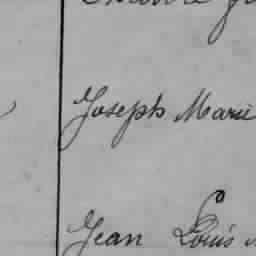 Joseph Marie
Jean Louis